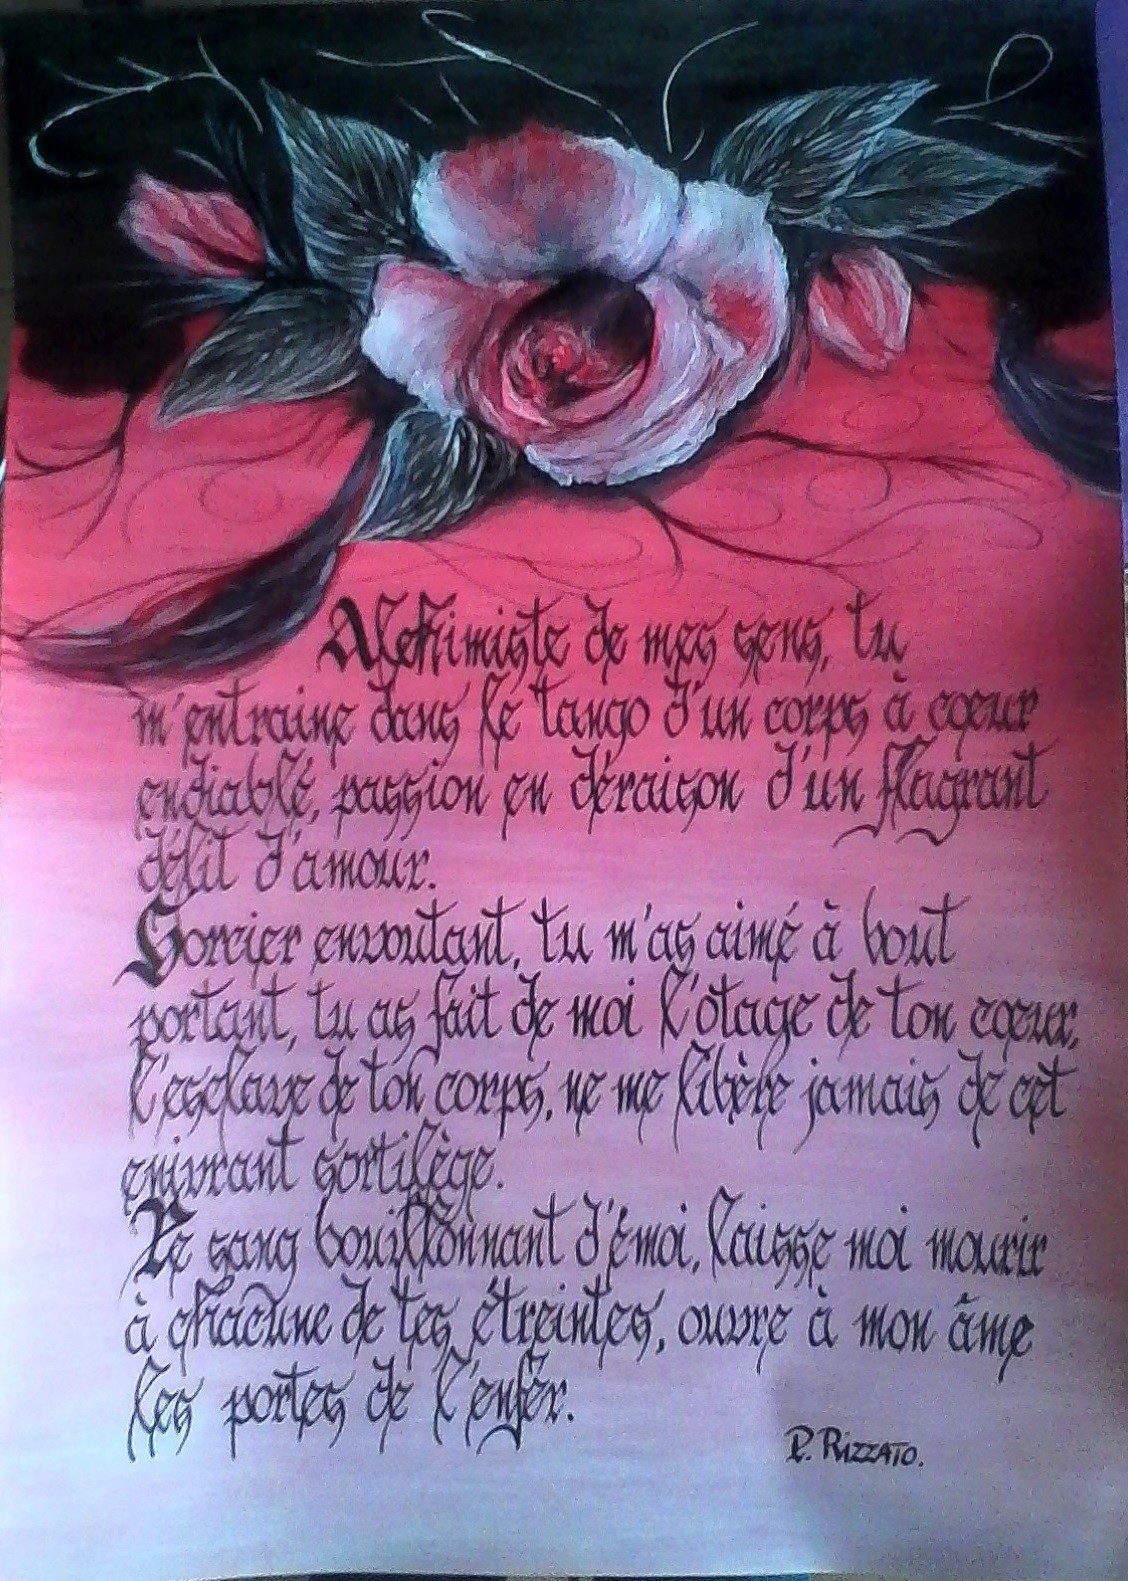 Alchimiste de mes sens, tu
m'entraine dans le tango d'un corps à cœur
endiablé, passion en déraison d'un flagrant
délit d'amour.
Sorcier envoutant, tu m'as aimé à bout
portant, tu as fait de moi l'otage de ton cœur,
l'esclave de ton corps, ne me libère jamais de cet
enivrant sortilège.
Le sang bouillonnant d'émoi, laisse moi mourir
à chacune de tes étreintes, ouvre à mon âme
les portes de l'enfer.
P. RIZZATO.